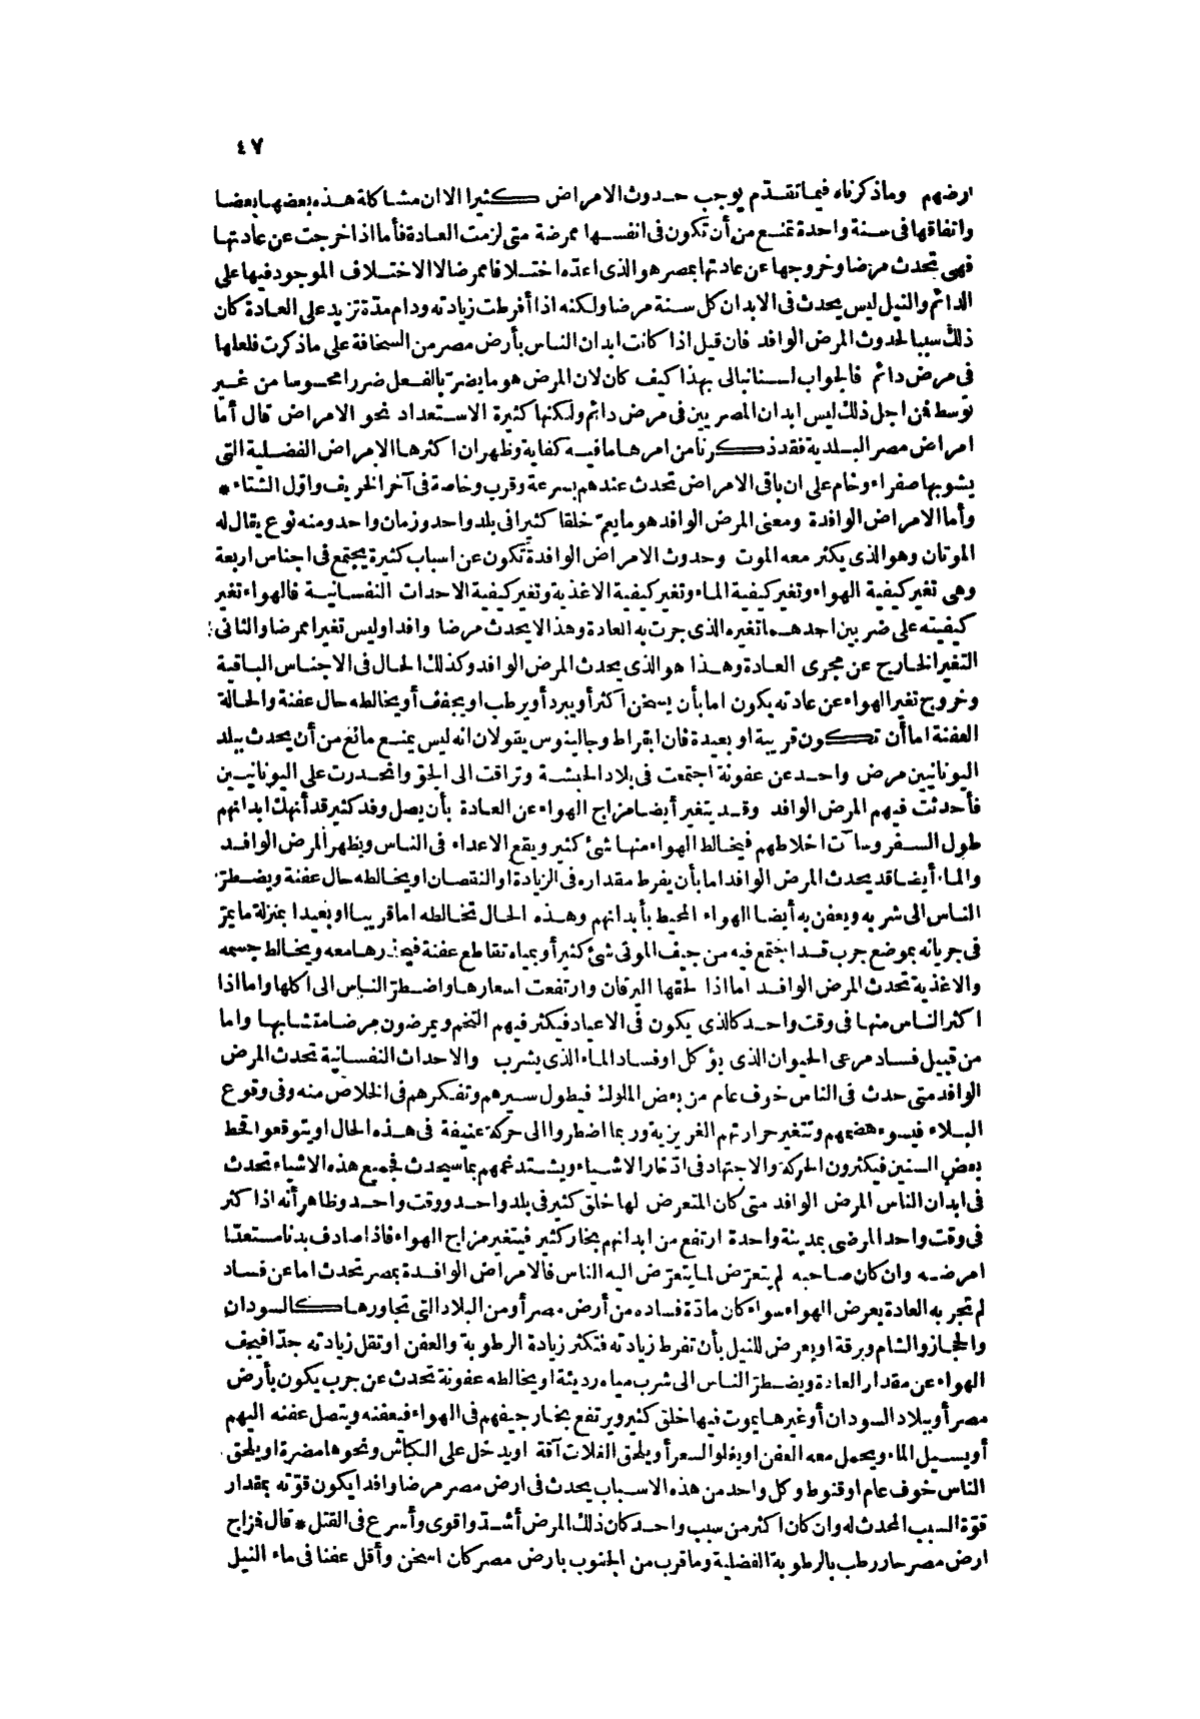 ٤٧
ارضهم وماذكرناه فيما تقدّم يوجب حدوث الامراض كثيرا الا ان مشاكلة هذه بعضها بعضا
واتفاقها فى سنة واحدة تمنع من أن تكون فى انفسها ممرضة متى لزمت العادة فأما اذا خرجت عن عادتها
فهى تحدث مرضا وخروجها عن عادتها بمصر هو الذى اعدّه اختلافا ممرضا لا الاختلاف الموجود فيها على
الدائم والنيل ليس يحدث فى الابدان كل سنة مرضا ولكنه اذا أفرطت زيادته ودام مدّة تزيد على العادة كان
ذلك سببا لحدوث المرض الوافد فان قيل اذا كانت ابدان الناس بأرض مصر من السخافة على ما ذكرت فلعلها
فى مرض دائم فالجواب لسنا نبالى بهذا كيف كان لان المرض هو ما يضرّ بالفعل ضررا محسوسا من غير
توسط فمن اجل ذلك ليس ابدان المصريين فى مرض دائم ولكنها كثيرة الاستعداد نحو الامراض قال أما
امراض مصر البلدية فقد ذكرنا من امرها ما فيه كفاية وظهر ان اكثرها الامراض الفضلية التى
يشوبها صفراء وخام على ان باقى الامراض تحدث عندهم بسرعة وقرب وخاصة فى آخر الخريف واوّل الشتاء *
وأما الامراض الوافدة ومعنى المرض الوافد هو ما يعمّ خلقا كثيرا فى بلد واحد وزمان واحد ومنه نوع يقال له
الموتان وهو الذى يكثر معه الموت وحدوث الامراض الوافدة تكون عن اسباب كثيرة يجتمع فى اجناس اربعة
وهى تغير كيفية الهواء وتغير كيفية الماء وتغير كيفية الاغذية وتغير كيفية الاحداث النفسانية فالهواء تغير
كيفيته على ضربين احدهما تغيره الذى جرت به العادة وهذا لا يحدث مرضا وافدا وليس تغيرا ممرضا والثانى
التغير الخارج عن مجرى العادة وهذا هو الذى يحدث المرض الوافد وكذلك الحال فى الاجناس الباقية
وخروج تغير الهواء عن عادته يكون اما بأن يسخن اكثر أو يبرد أو يرطب او يجفف أو يخالطه حال عفنة والحالة
العفنة اما أن تكون قريبة او بعيدة فان ابقراط وجالينوس يقولان انه ليس يمنع مانع من أن يحدث ببلد
اليونانيين مرض واحد عن عفونة اجتمعت فى بلاد الحبشة وتراقت الى الجوّ وانحدرت على اليونانيين
فأحدثت فيهم المرض الوافد وقد يتغير أيضا مزاج الهواء عن العادة بأن يصل وفد كثير قد أنهك ابدانهم
طول السفر وساءت اخلاطهم فيخالط الهواء منها شئ كثير ويقع الاعداء فى الناس ويظهر المرض الوافد
والماء أيضا قد يحدث المرض الوافد اما بأن يفرط مقداره فى الزيادة او النقصان او يخالطه حال عفنة ويضطرّ
الناس الى شربه ويعفن به أيضا الهواء المحيط بأبدانهم وهذه الحال تخالطه اما قريبا او بعيدا بمنزلة ما يمرّ
فى جريانه بموضع حرب قد اجتمع فيه من جيف الموتى شئ كثير أو بمياه نقاطع عفنة فيحدرها معه ويخالط جسمه
والاغذية تحدث المرض الوافد اما اذا لحقها اليرقان وارتفعت اسعارها واضطرّ الناس الى اكلها واما اذا
اكثر الناس منها فى وقت واحد كالذى يكون فى الاعياد فيكثر فيهم التخم ويمرضون مرضا متشابها واما
من قبيل فساد مرعى الحيوان الذى يؤكل او فساد الماء الذى يشرب والاحداث النفسانية تحدث المرض
الوافد متى حدث فى الناس خوف عام من بعض الملوك فيطول سهرهم وتفكرهم فى الخلاص منه وفى وقوع
البلاء فيسوء هضمهم وتتغير حرارتهم الغريزية وربما اضطروا الى حركة عنيفة فى هذه الحال او يتوقعوا قحط
بعض السنين فيكثرون الحركة والاجتهاد فى ادّخار الاشياء ويشتد غمهم بما سيحدث فجميع هذه الاشياء تحدث
فى ابدان الناس المرض الوافد متى كان المتعرض لها خلق كثير فى بلد واحد ووقت واحد وظاهر أنه اذا كثر
فى وقت واحد المرضى بمدينة واحدة ارتفع من ابدانهم بخار كثير فيتغير مزاج الهواء فاذا صادف بدنا مستعدّا
امرضه وان كان صاحبه لم يتعرّض لما يتعرّض اليه الناس فالامراض الوافدة بمصر تحدث اما عن فساد
لم تجر به العادة يعرض الهواء سواء كان مادّة فساده من أرض مصر أو من البلاد التى تجاورها كالسودان
والحجاز والشام وبرقة او يعرض للنيل بأن تفرط زيادته فتكثر زيادة الرطوبة والعفن او تقل زيادته جدّا فيجف
الهواء عن مقدار العادة ويضطرّ الناس الى شرب مياه رديئة او يخالطه عفونة تحدث عن حرب يكون بأرض
مصر أو ببلاد السودان أو غيرها يموت فيها خلق كثير ويرتفع بخار جيفهم فى الهواء فيعفنه ويتصل عفنه اليهم
أو يسيل الماء ويحمل معه العفن او يغلو السعر أو يلحق الغلات آفة او يدخل على الكباش ونحوها مضرة او يلحق
الناس خوف عام او قنوط وكل واحد من هذه الاسباب يحدث فى ارض مصر مرضا وافدا يكون قوّته بمقدار
قوّة السبب المحدث له وان كان اكثر من سبب واحد كان ذلك المرض أشدّ واقوى وأسرع فى القتل * قال فزاج
ارض مصر حار رطب بالرطوبة الفضلية وما قرب من الجنوب بارض مصر كان اسخن وأقل عفنا فى ماء النيل